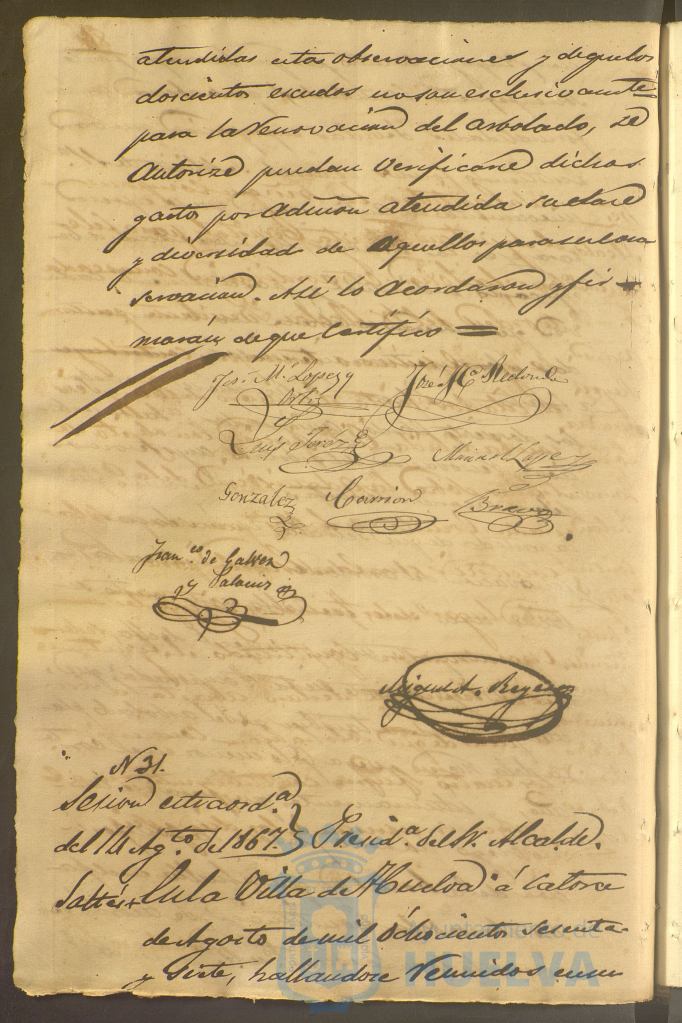 atendidas estas observaciones y de que los
doscientos escudos no son esclusivamte
para la renovacion del arbolado, se
Autorize puedan verificarse dichos
gastos por Admon atendida su clase
y diversidad de aquellos para su con
servacion. Asi lo acordaron y fir-
marán de que Certifico =
José M. Lopez y
Ortiz
José Ma Redondo
Luis Perez
Manuel Lopez
Gonzalez
Carrion
Bravo
Franco de
y Palacios
Miguel A. Reyes
N 31.
Sesion extraorda
del 14 Agto de 1867.
Presida del Sr. Alcalde.
En la Villa de Huelva á catorce
de Agosto de mil ochocientos sesenta
y siete, hallandose reunidos en su
Ayuntamiento de
HUELVA